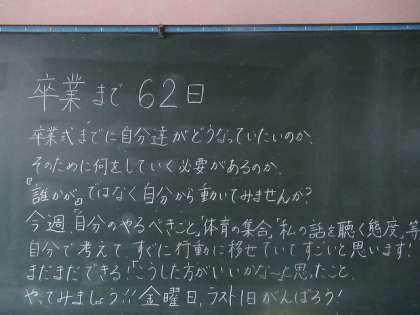 卒業まで 62日
卒業式までに自分達がどうなっていたいのか、
そのために何をしていく必要があるのか、
『誰かが』ではなく自分から動いてみませんか?
今週、自分のやるべきこと、「体育の集合」「私の話を聴く態度」等
自分で考えて すぐに行動に移せていてすごいと思います!
まだまだできる!「こうした方がいいかな〜」と思ったこと、
やってみましょう!! 金曜日、ラスト1日がんばろう!